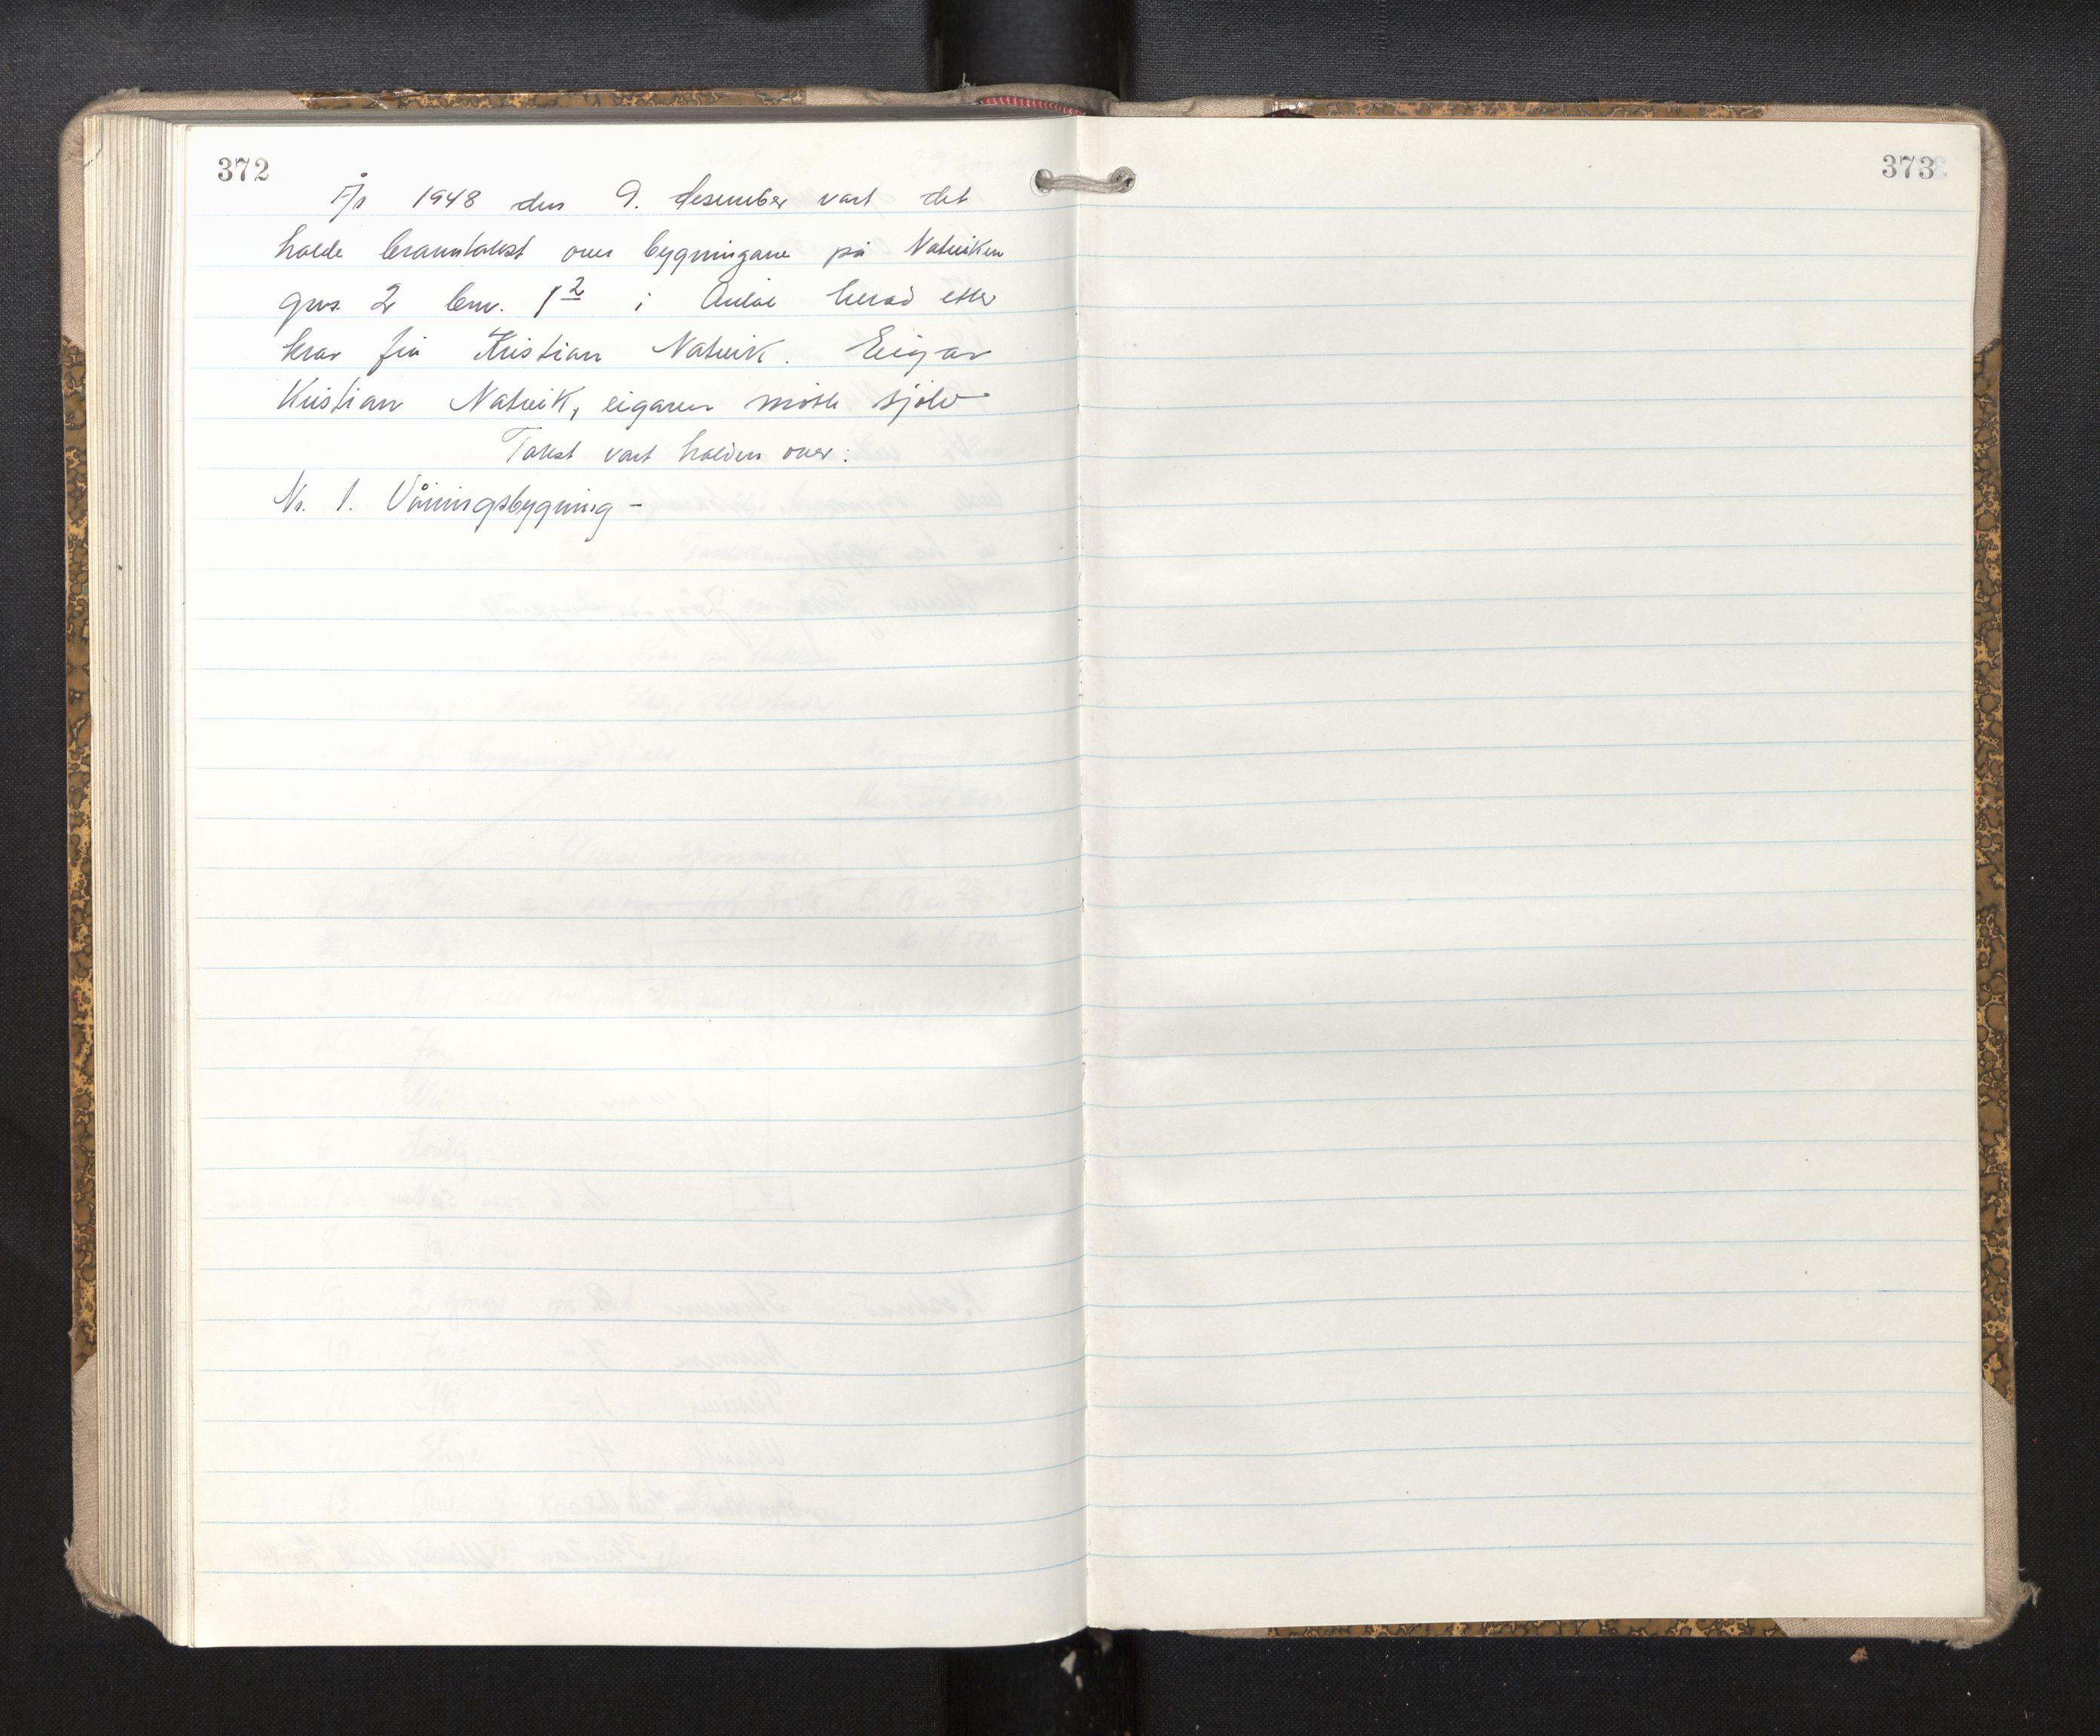 372
År 1948 den 9. desember vart det
halde branntakst over bygningane på Natviken
gnr. 2 bnr. 1² i herad etter
krav frå Kristian Natvik. Eigar
Kristian Natvik, eigaren møtte sjølv
Takst vart halden over:
Nr. 1. Våningsbygning -
373